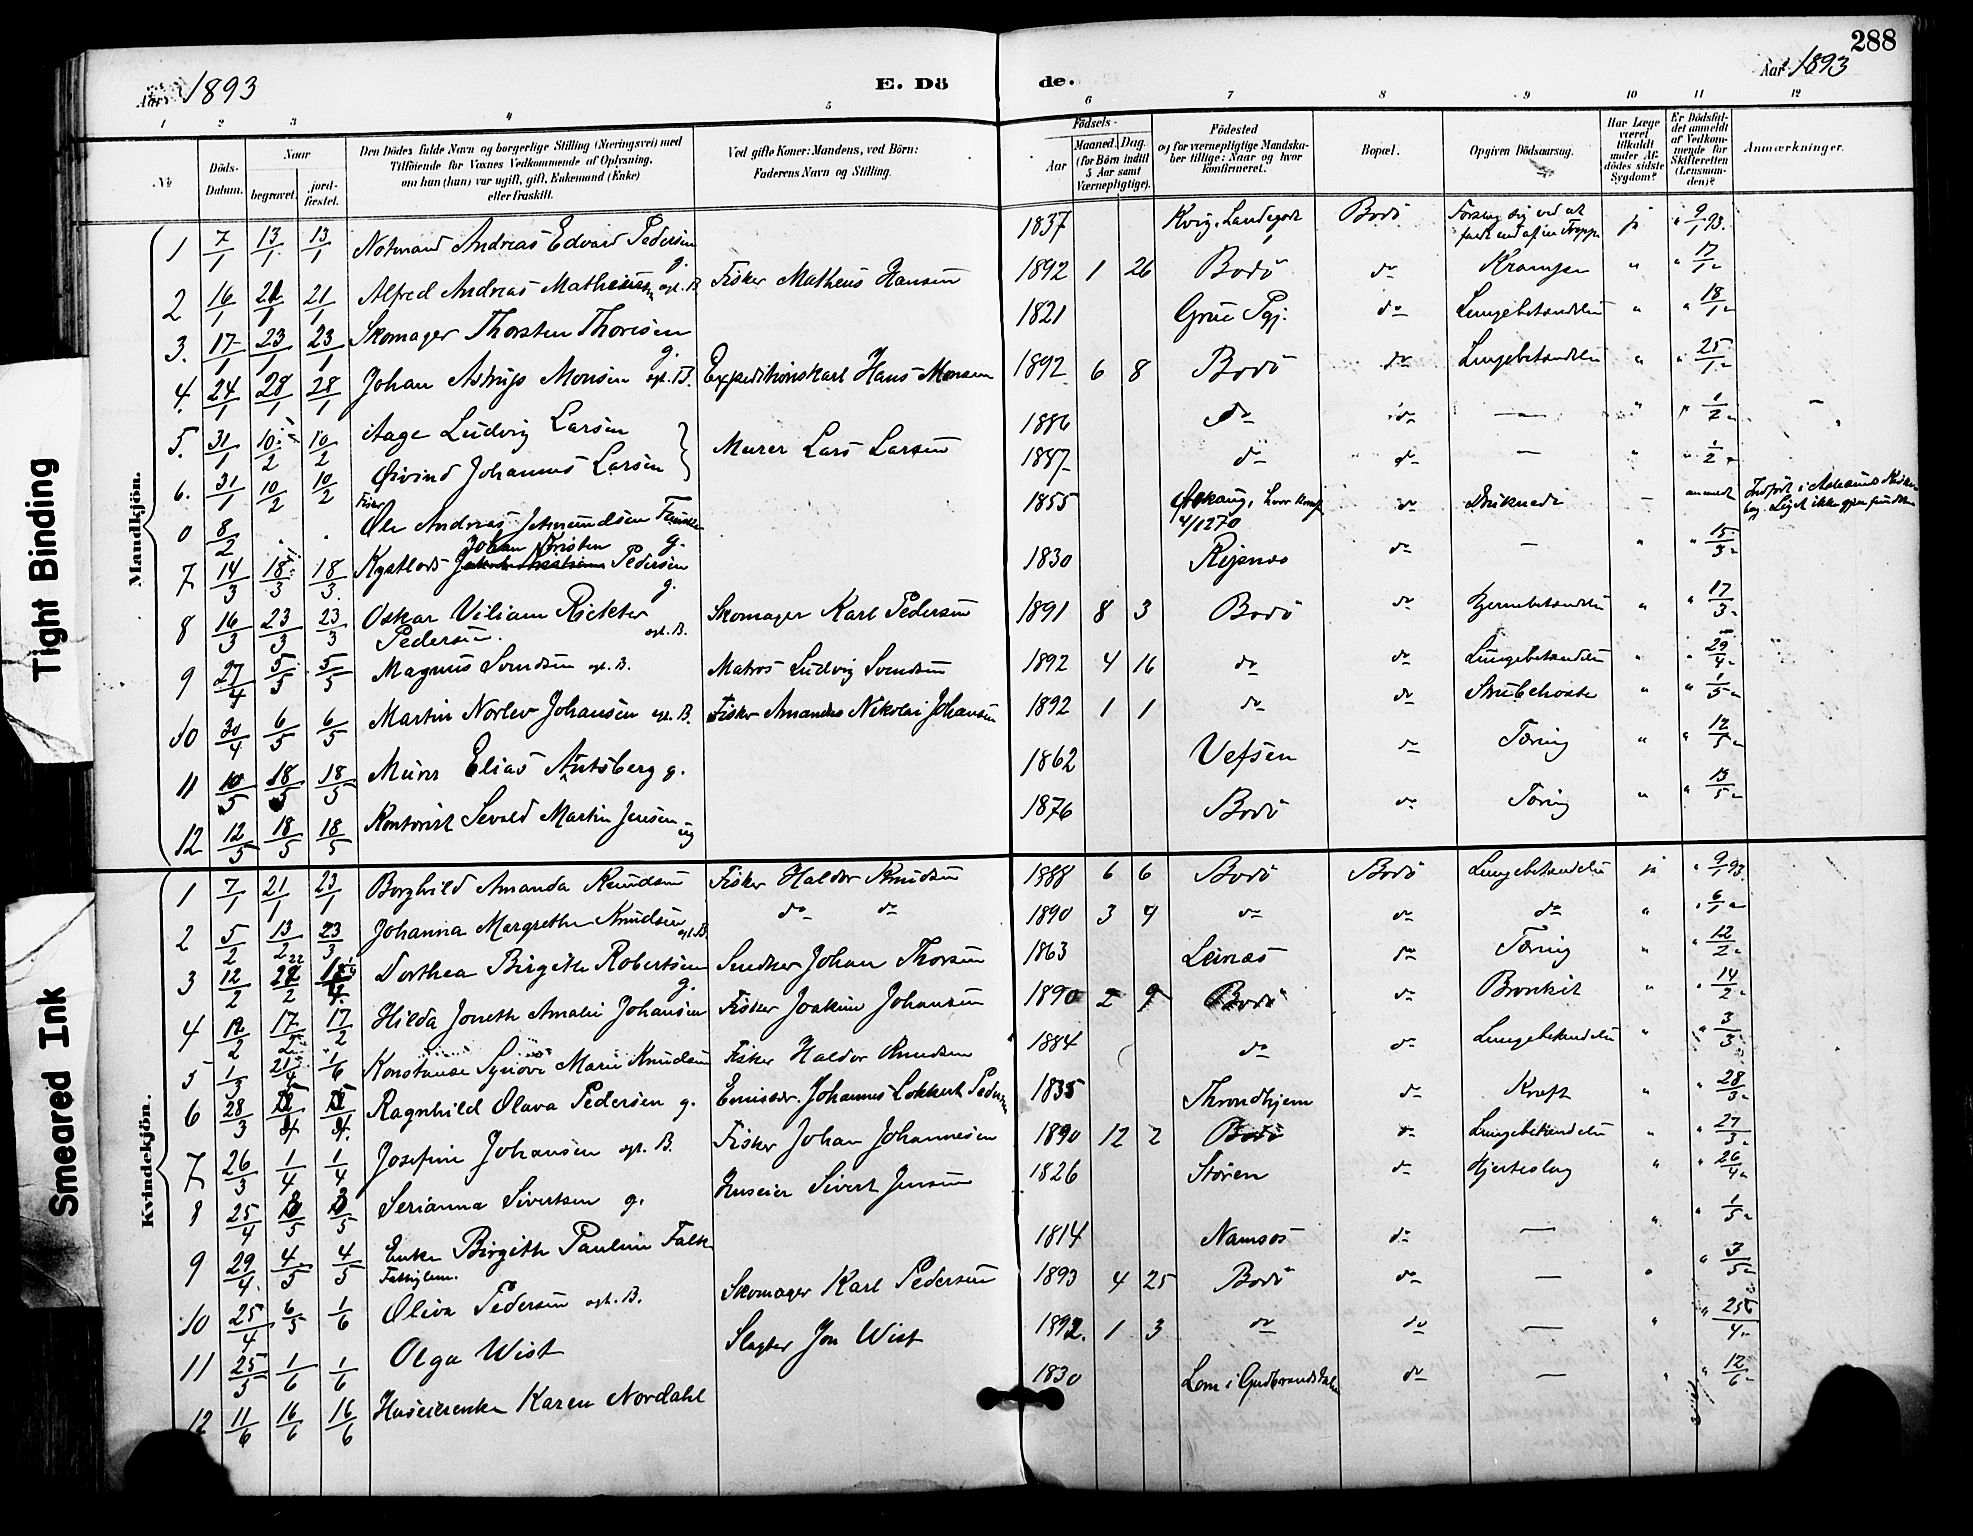 288
Aar 1893
E. Döde.
Aar 1893
1 2 3 4 5 6 7 8 9 10 11 12
No
Döds-Datum.
Naar
begravet.
jord-fæstet.
Den Dödes fulde Navn og borgerlige Stilling (Næringsvei) med
Tilföiende for Voxnes Vedkommende af Oplysning,
om han (hun) var ugift, gift, Enkemand (Enke)
eller fraskilt.
Ved gifte Koner: Mandens, ved Börn:
Faderens Navn og Stilling.
Födsels-
Aar
Maaned. Dag.
(for Börn indtil
5 Aar samt
Værnepligtige).
Födested
og for værnepligtige Mandska-
ber tillige: Naar og hvor
konfirmeret.
Bopæl.
Opgiven Dödsaarsag.
Har Læge
været
tilkaldt
under Af-
dödes sidste
Sygdom?
Er Dödsfal-
det anmeldt
af Vedkom-
mende for
Skifteretten
(Lensman-
den)?
Anmærkninger.
Mandkjön.
1 7/1 13/1 13/1 Notmand Andreas Edvard Pedersen g. 1837 Bodö ja " 9/1 93.
2 16/1 21/1 21/1 Alfred Andreas Matheussen egt. B. Fisker Matheus Hansen 1892 1 26 Bodö do Krampe " " 17/1 "
3. 17/1 23/1 23/1 Skomager Thorsten Thorisen g. 1821 Grue Pgj. do Lungebetændelse " " 18/1 "
4. 24/1 28/1 28/1 Johan Astrup Monsen egt. B. Expeditionskarl Hans Monsen 1892 6 8 Bodö do Lungebetændelse " " 25/1 "
5. 31/1 10/2 10/2 Aage Ludvig Larsen Murer Lars Larsen 1886 do do — " " 1/2 "
6. 31/1 10/2 10/2 Øivind Johannes Larsen 1887 do do — " " 1/2 "
0 8/2 Fisker Ole Andreas g. 1855 do Druknede — anmeldt
7 14/3 18/3 18/3 Johan Kristen Pedersen g. 1830 do — " " 15/3 "
8 16/3 23/3 23/3 Oskar Viliam Rickter Pedersen. egt. B. Skomager Karl Pedersen 1891 8 3 Bodö do Hjernebetændelse " " 17/3 "
9 27/4 5/5 5/5 Magnus Svendsen egt. B. Matros Ludvig Svendsen 1892 4 16 do do Lungebetændelse " " 29/4 "
10 30/4 6/5 6/5 Martin Norlev Johansen egt. B. Fisker Amandus Nikolai Johansen 1892 1 1 do do Strubehoste " " 1/5 "
11 10/5 18/5 18/5 Murer Elias Antsberg g. 1862 Vefsen do Tæring " " 12/5 "
12 12/5 18/5 18/5 Kontorist Sevald Martin Jensen ug 1876 Bodö do Tæring " " 13/5 "
Kvindekjön.
1 7/1 21/1 23/1 Borghild Amanda Knudsen Fisker Haldor Knudsen 1888 6 6 Bodö Bodö Lungebetændelse ja " 9/1 93.
2 5/2 13/2 23/3 Johanna Margrethe Knudsen egt. B. do do 1890 3 4 do do do " " 6/1 "
3 12/2 22/2 Dorthea Birgithe Robertsen g. Snedker Johan Thorsen 1863 Leines do Tæring " " 12/2 "
4 12/2 17/2 17/2 Hilda Amalie Johansen Fisker Joakim Johansen 1890 2 9 Bodö do Bronkit " " 14/2 "
5 1/3 21/4 1/6 Konstanse Synöve Marie Knudsen Fisker Haldor Knudsen 1884 do do Lungebetændelse " " 3/3 "
6 28/3 Ragnhild Olava Pedersen g. Emissær. Johannes Lokkert Pedersen 1835 Throndhjem do Kræft " " 28/3 "
7 26/3 1/4 1/4 Josefine Johansen egt. B. Fisker Johan Johannesen 1890 12 2 Bodö do Lungebetændelse " " 27/3 "
8 25/4 Serianna Sivertsen g. Huseier Sivert Jensen 1826 Stören do Hjerteslag " " 26/4 "
9 29/4 4/5 4/5 Enke Birgithe Pauline Falk Fattiglem. 1814 Namsos do — " " 1/5 "
10 25/4 6/5 1/6 Oliva Pedersen egt. B. Skomager Karl Pedersen 1893 4 25 Bodö do — " " 3/5 "
11 25/5 1/6 1/6 Olga Wist Slagter Jon Wist 1892. 1 3 do do — "
12 11/6 16/6 16/6 Huseierenke Karen Nordahl 1830 Lom i Gudbrandsdalen do — " " 12/6 "
Tight Binding
Smeared Ink